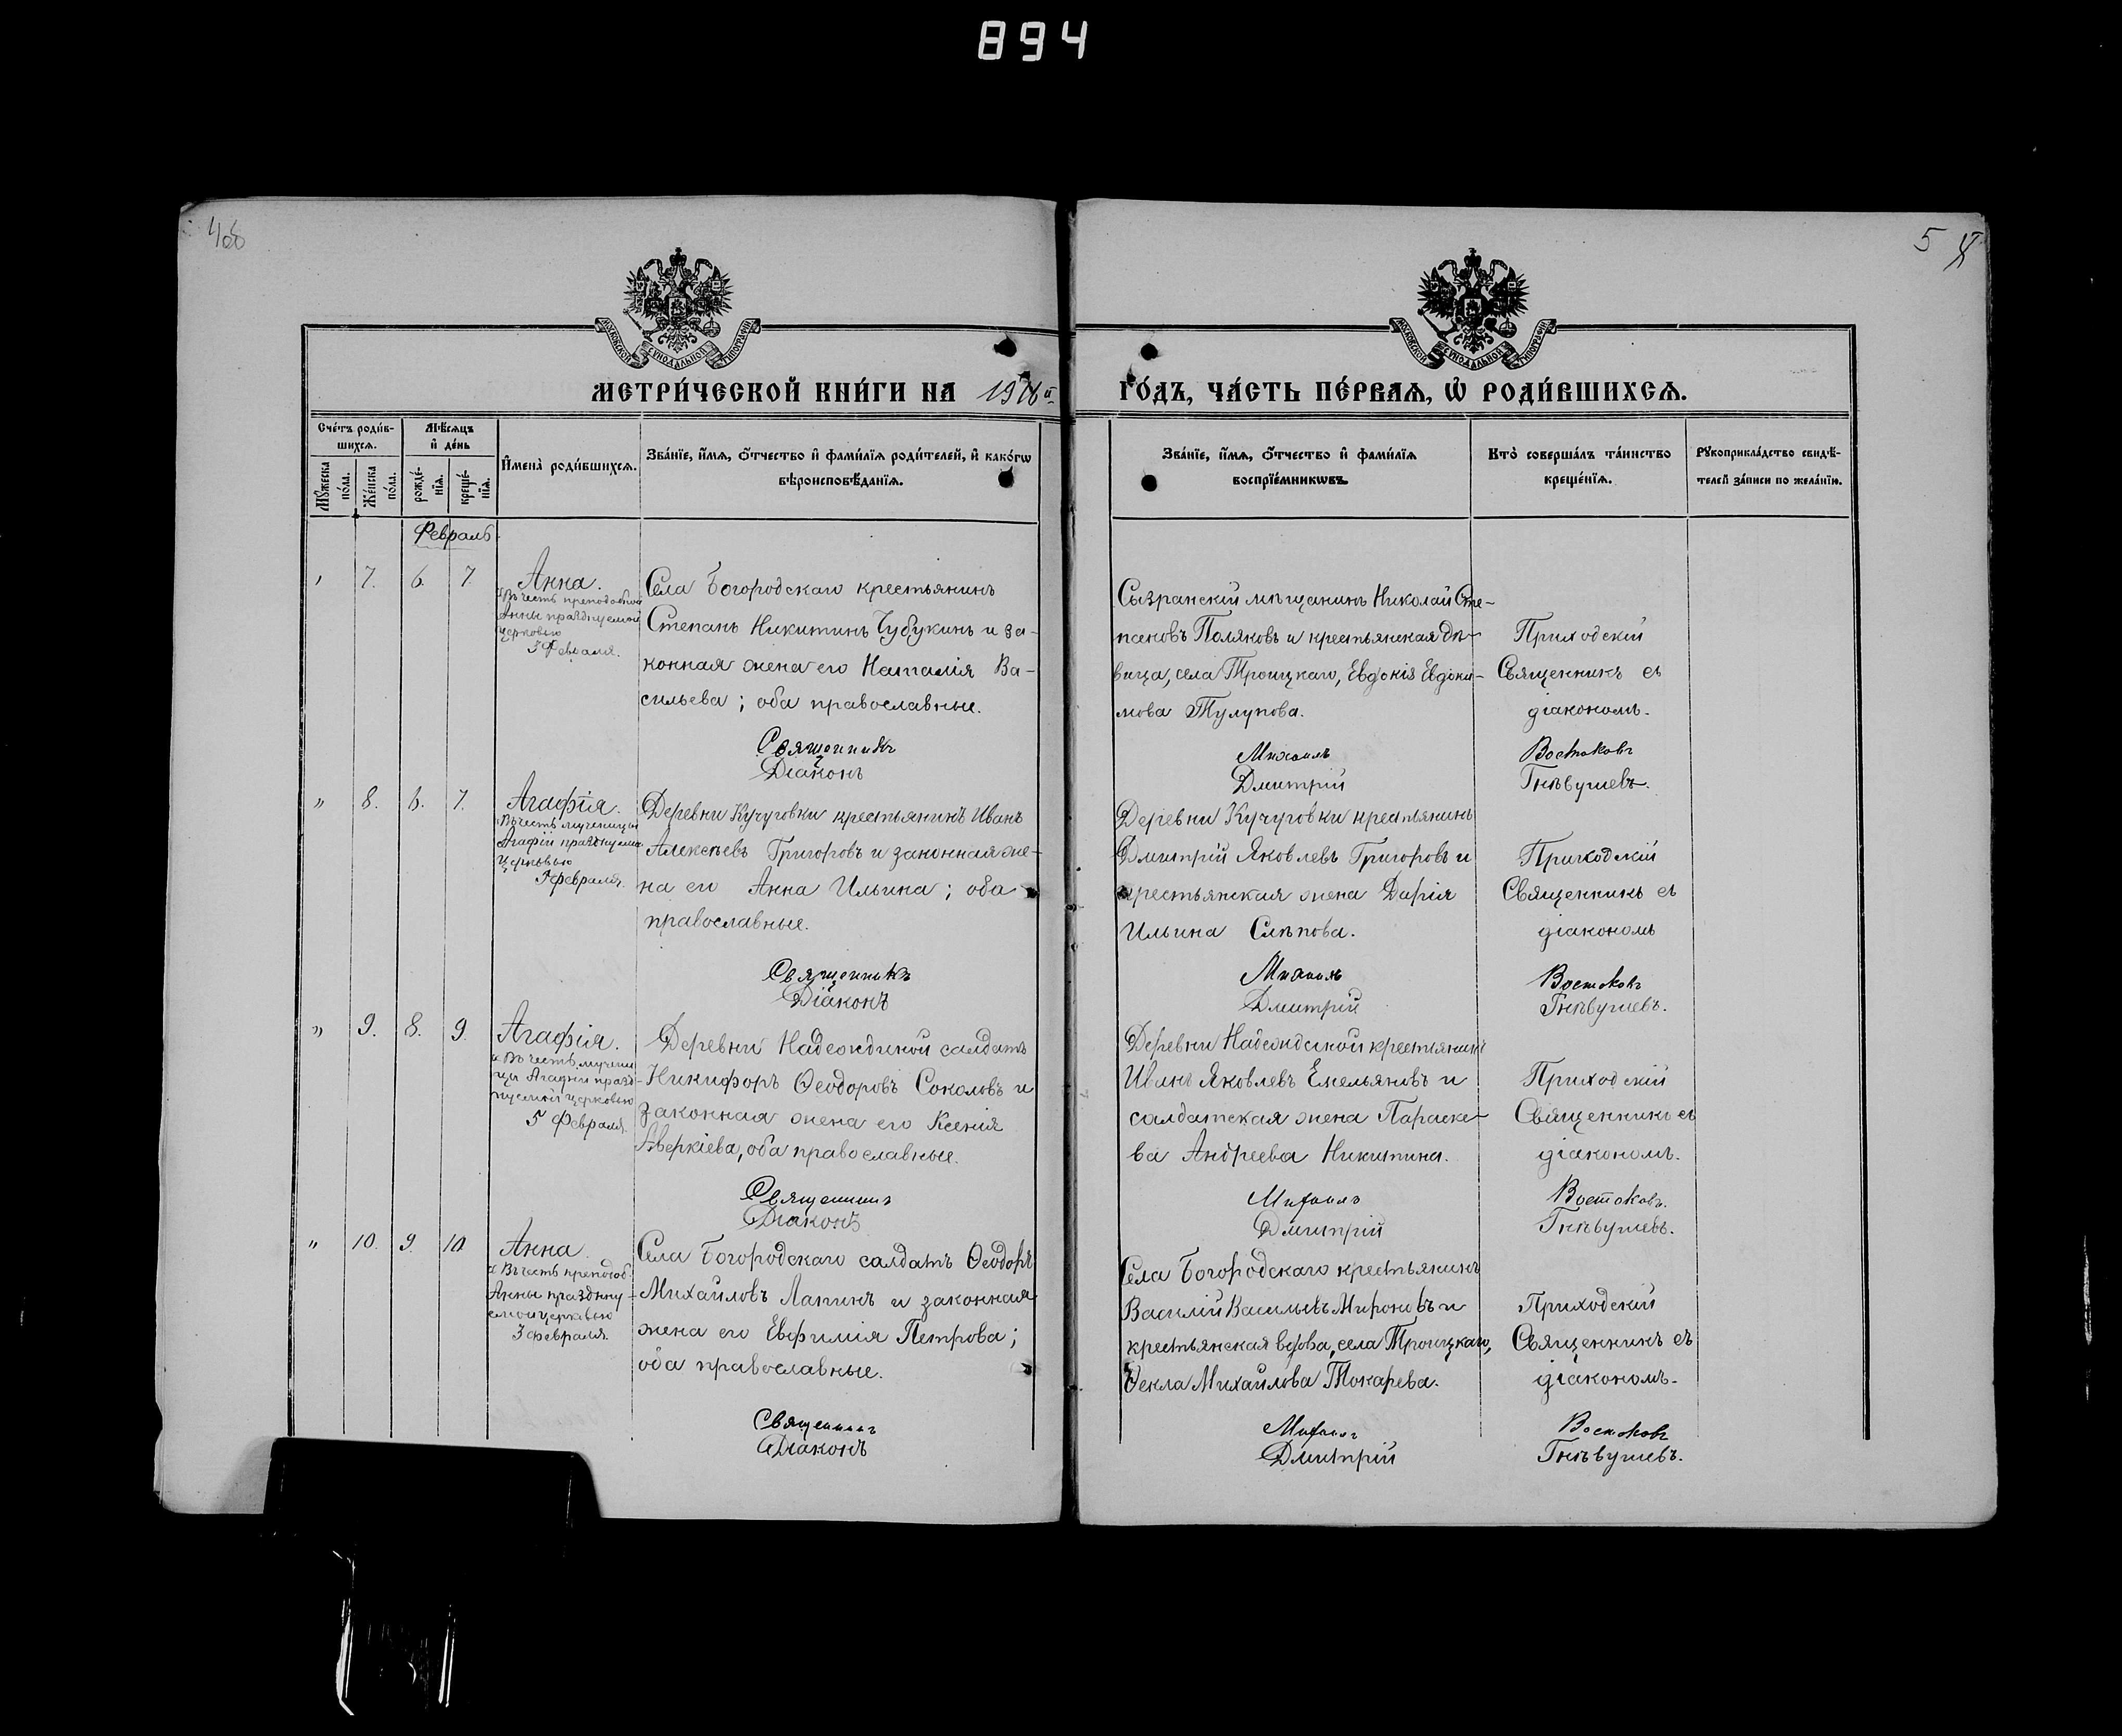 894
5
МОСКОВСКОЙ СѴНОДАЛЬНОЙ ТИПОГРАФІИ
МОСКОВСКОЙ СѴНОДАЛЬНОЙ ТИПОГРАФІИ
МЕТРИ́ЧЕСКОЙ КНИ́ГИ НА
ГО́ДЪ, ЧА́СТЬ ПЕ́РВАѦ, Ѡ҆ РОДИ́ВШИХСѦ.
Сче́тъ роди́в-
шихсѧ.
Мꙋ́жеска по́ла.
Же́нска по́ла.
Мѣ́сѧцъ
и҆ де́нь
рожде́-нїѧ.
креще́-нїѧ.
И҆мена̀ роди́вшихсѧ.
Зва́нїе, и҆́мѧ, ѻ҆́тчество и҆ фами́лїѧ роди́телей, и҆ како́гѡ
вѣроисповѣ́данїѧ.
Зва́нїе, и҆́мѧ, ѻ҆́тчество и҆ фами́лїѧ
воспрїе́мникѡвъ.
Кто̀ соверша́лъ та́инство
креще́нїѧ.
Рꙋкоприкла́дство свидѣ́-
телей за́писи по жела́нїю.
Февраль
7. 6. 7
Анна.
Въ честь преподобной
Анны празднуемой
церковью
3 Февраля.
Села Богородскаго крестьянинъ
Степанъ Никитинъ Чубукинъ и за-
конная жена его Наталія Ва-
сильева; оба православные.
Сызранскій мѣщанинъ Николай Сте-
пановъ Поляковъ и крестьянская дѣ-
вица, села Троицкаго, Евдокія Евдоки-
мова Тулупова.
Приходскій
Священникъ съ
діакономъ.
Священникъ Михаилъ Востоковъ
Діаконъ Дмитрій Гнѣвушевъ.
" 8. 6. 7.
Агафія.
Въ честь мученицы
Агафіи празднуемой
церковью
5 февраля.
Деревни Кучуговки крестьянинъ Иванъ
Алексѣевъ Григоровъ и законная же-
на его Анна Ильина; оба
православные.
Деревни Кучуговки крестьянинъ
Дмитрій Яковлевъ Григоровъ и
крестьянская жена Дарія
Ильина Слѣпова.
Приходскій
Священникъ съ
діакономъ
Священникъ Михаилъ Востоковъ
Діаконъ Дмитрій Гнѣвушевъ.
" 9. 8. 9.
Агафія.
"Въ честь мучени-
цы Агафіи празд-
нуемой церковью
5 Февраля.
Деревни Надеждиной салдатъ
Никифоръ Ѳеодоровъ Соколовъ и
законная жена его Ксенія
Аверкіева, оба православные.
Деревни Надеждиной крестьянинъ
Иванъ Яковлевъ Емельяновъ и
салдатская жена Параске-
ва Андреева Никитина.
Приходскій
Священникъ съ
діакономъ.
Священникъ Михаилъ Востоковъ.
Діаконъ Дмитрій Гнѣвушевъ.
" 10. 9. 10
Анна.
"Въ честь преподоб.
Анны праздну-
емой церковью
3 февраля.
Села Богородскаго салдатъ Ѳеодоръ
Михайловъ Лапинъ и законная
жена его Евфимія Петрова;
оба православные.
Села Богородскаго крестьянинъ
Василій Васильевъ Мироновъ и
крестьянская вдова, села Троицкаго,
Ѳекла Михайлова Токарева.
Приходскій
Священникъ съ
діакономъ.
Священникъ Михаилъ Востоковъ
Діаконъ Дмитрій Гнѣвушевъ.